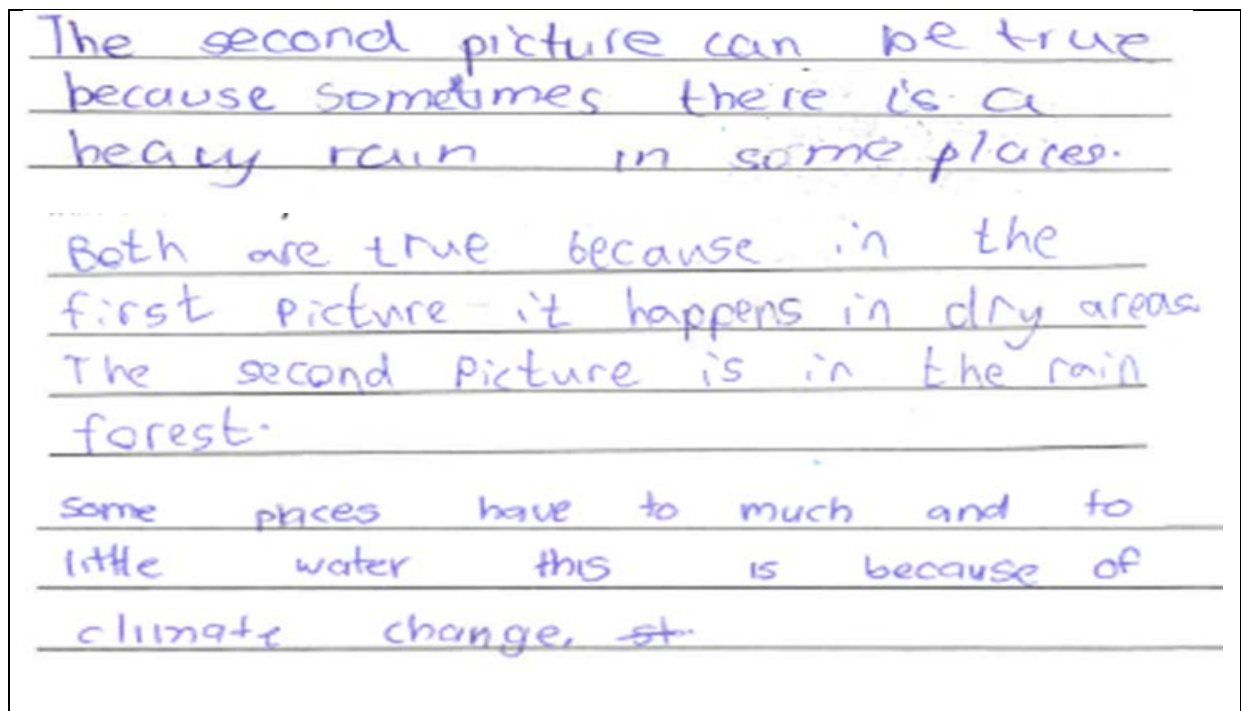 The second picture can be true
because sometimes there is a
heavy rain in some places.
Both are true because in the
first picture it happens in dry areas
The second picture is in the rain
forest.
some places have to much and to
little water this is because of
climate change, st